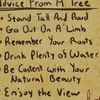 Advice From A Tree
Stand Tall And Proud
Go Out On A Limb
Remember Your Roots
Drink Plenty of Water
Be Content with Your
Natural Beauty
Enjoy the View